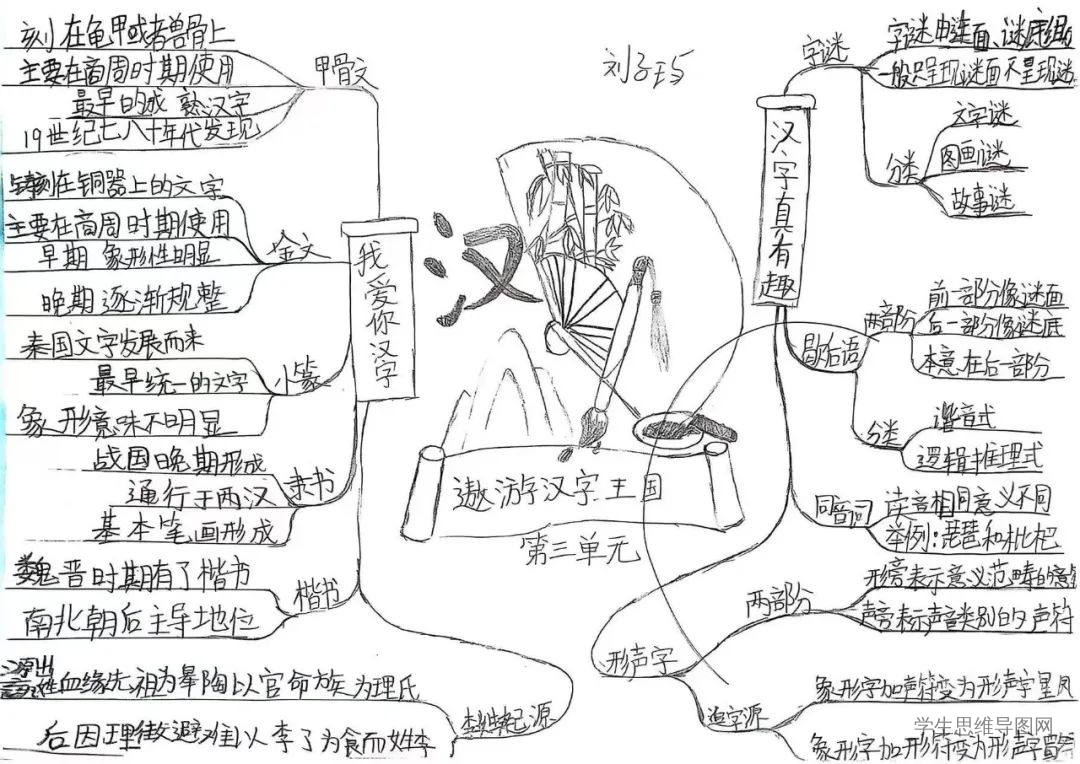 刘子玙
汉
遨游汉字王国
第三单元
我爱你汉字
甲骨文
刻在龟甲或者兽骨上
主要在商周时期使用
最早的成熟汉字
19世纪七八十年代发现
金文
铸刻在铜器上的文字
主要在商周时期使用
早期象形性明显
晚期逐渐规整
小篆
秦国文字发展而来
最早统一的文字
象形意味不明显
隶书
战国晚期形成
通行于两汉
基本笔画形成
楷书
魏晋时期有了楷书
南北朝后主导地位
李姓起源
血缘先祖为皋陶以官命族为理氏
后因理徵避难以李子为食而姓李
汉字真有趣
字谜
字谜由谜面、谜底组
一般只呈现谜面不呈现谜
分类
文字谜
图画谜
故事谜
歇后语
两部分
前一部分像谜面
后一部分像谜底
本意在后一部分
分类
谐音式
逻辑推理式
同音词
读音相同意义不同
举例：琵琶和枇杷
形声字
两部分
形旁表示意义范畴的意
声旁表示声音类别的声符
追字源
象形字加声符变为形声字星凤
象形字加形符变为形声字
学生思维导图网